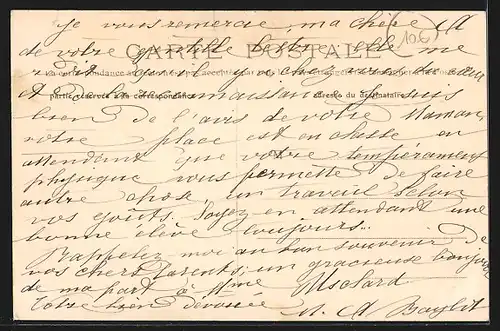 je vous remercie, ma chère
106
de votre gentille lettre, elle me
CARTE POSTALE
qu'il y a chez vous du cœur
et de la reconnaissance. Je suis
bien de l'avis de votre Maman,
votre place est en classe en
attendant que votre tempérament
physique vous permette de faire
autre chose, un travail selon
vos goûts. Soyez en attendant une
bonne élève toujours..
Rappelez moi au bon souvenir de
vos chers parents; un gracieux bonjour
de ma part à Mme
Votre bien dévouée